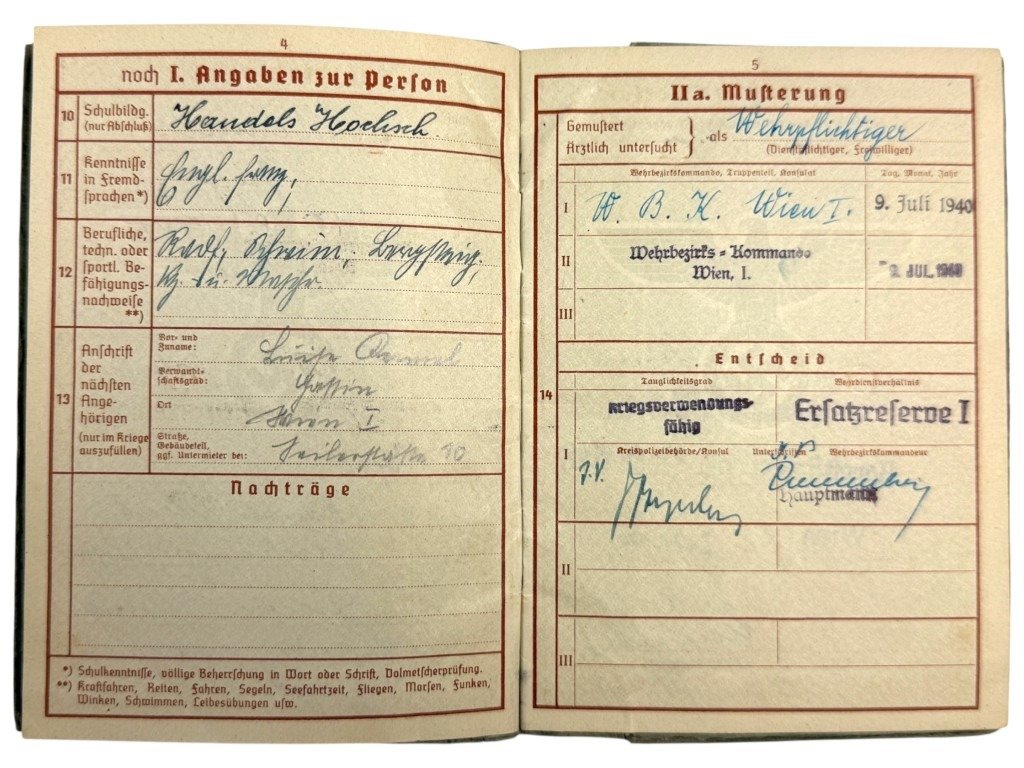 4
noch I. Angaben zur Person
10 Schulbildg. (nur Abschluß) Handels Hochsch.
11 Kenntnisse in Fremd-sprachen *) Engl. franz,
12 Berufliche, techn. oder sportl. Be-fähigungs-nachweise **) Radf, Schwim, Bergsteig.
13 Anschrift der nächsten Ange-hörigen (nur im Kriege auszufüllen)
Vor- und Zuname: Luise
Verwandt-schaftsgrad: Gattin
Ort Wien I
Straße, Gebäudeteil, ggf. Untermieter bei: Seilerstätte 10
Nachträge
*) Schulkenntnisse, völlige Beherrschung in Wort oder Schrift, Dolmetscherprüfung.
**) Kraftfahren, Reiten, Fahren, Segeln, Seefahrtzeit, Fliegen, Morsen, Funken,
Winken, Schwimmen, Leibesübungen usw.
5
IIa. Musterung
Gemustert
Ärztlich untersucht } als Wehrpflichtiger
(Dienstpflichtiger, Freiwilliger)
Wehrbezirkskommando, Truppenteil, Konsulat Tag, Monat, Jahr
I W. B. K. Wien I. 9. Juli 1940
II Wehrbezirks-Kommando
Wien, I. 9. JUL. 1940
III
Entscheid
14
Tauglichkeitsgrad Wehrdienstverhältnis
kriegsverwendungs-
fähig
Ersatzreserve I
I Kreispolizeibehörde/Konsul Unterschriften Wehrbezirkskommandeur
J.V.
Hauptmann
II
III